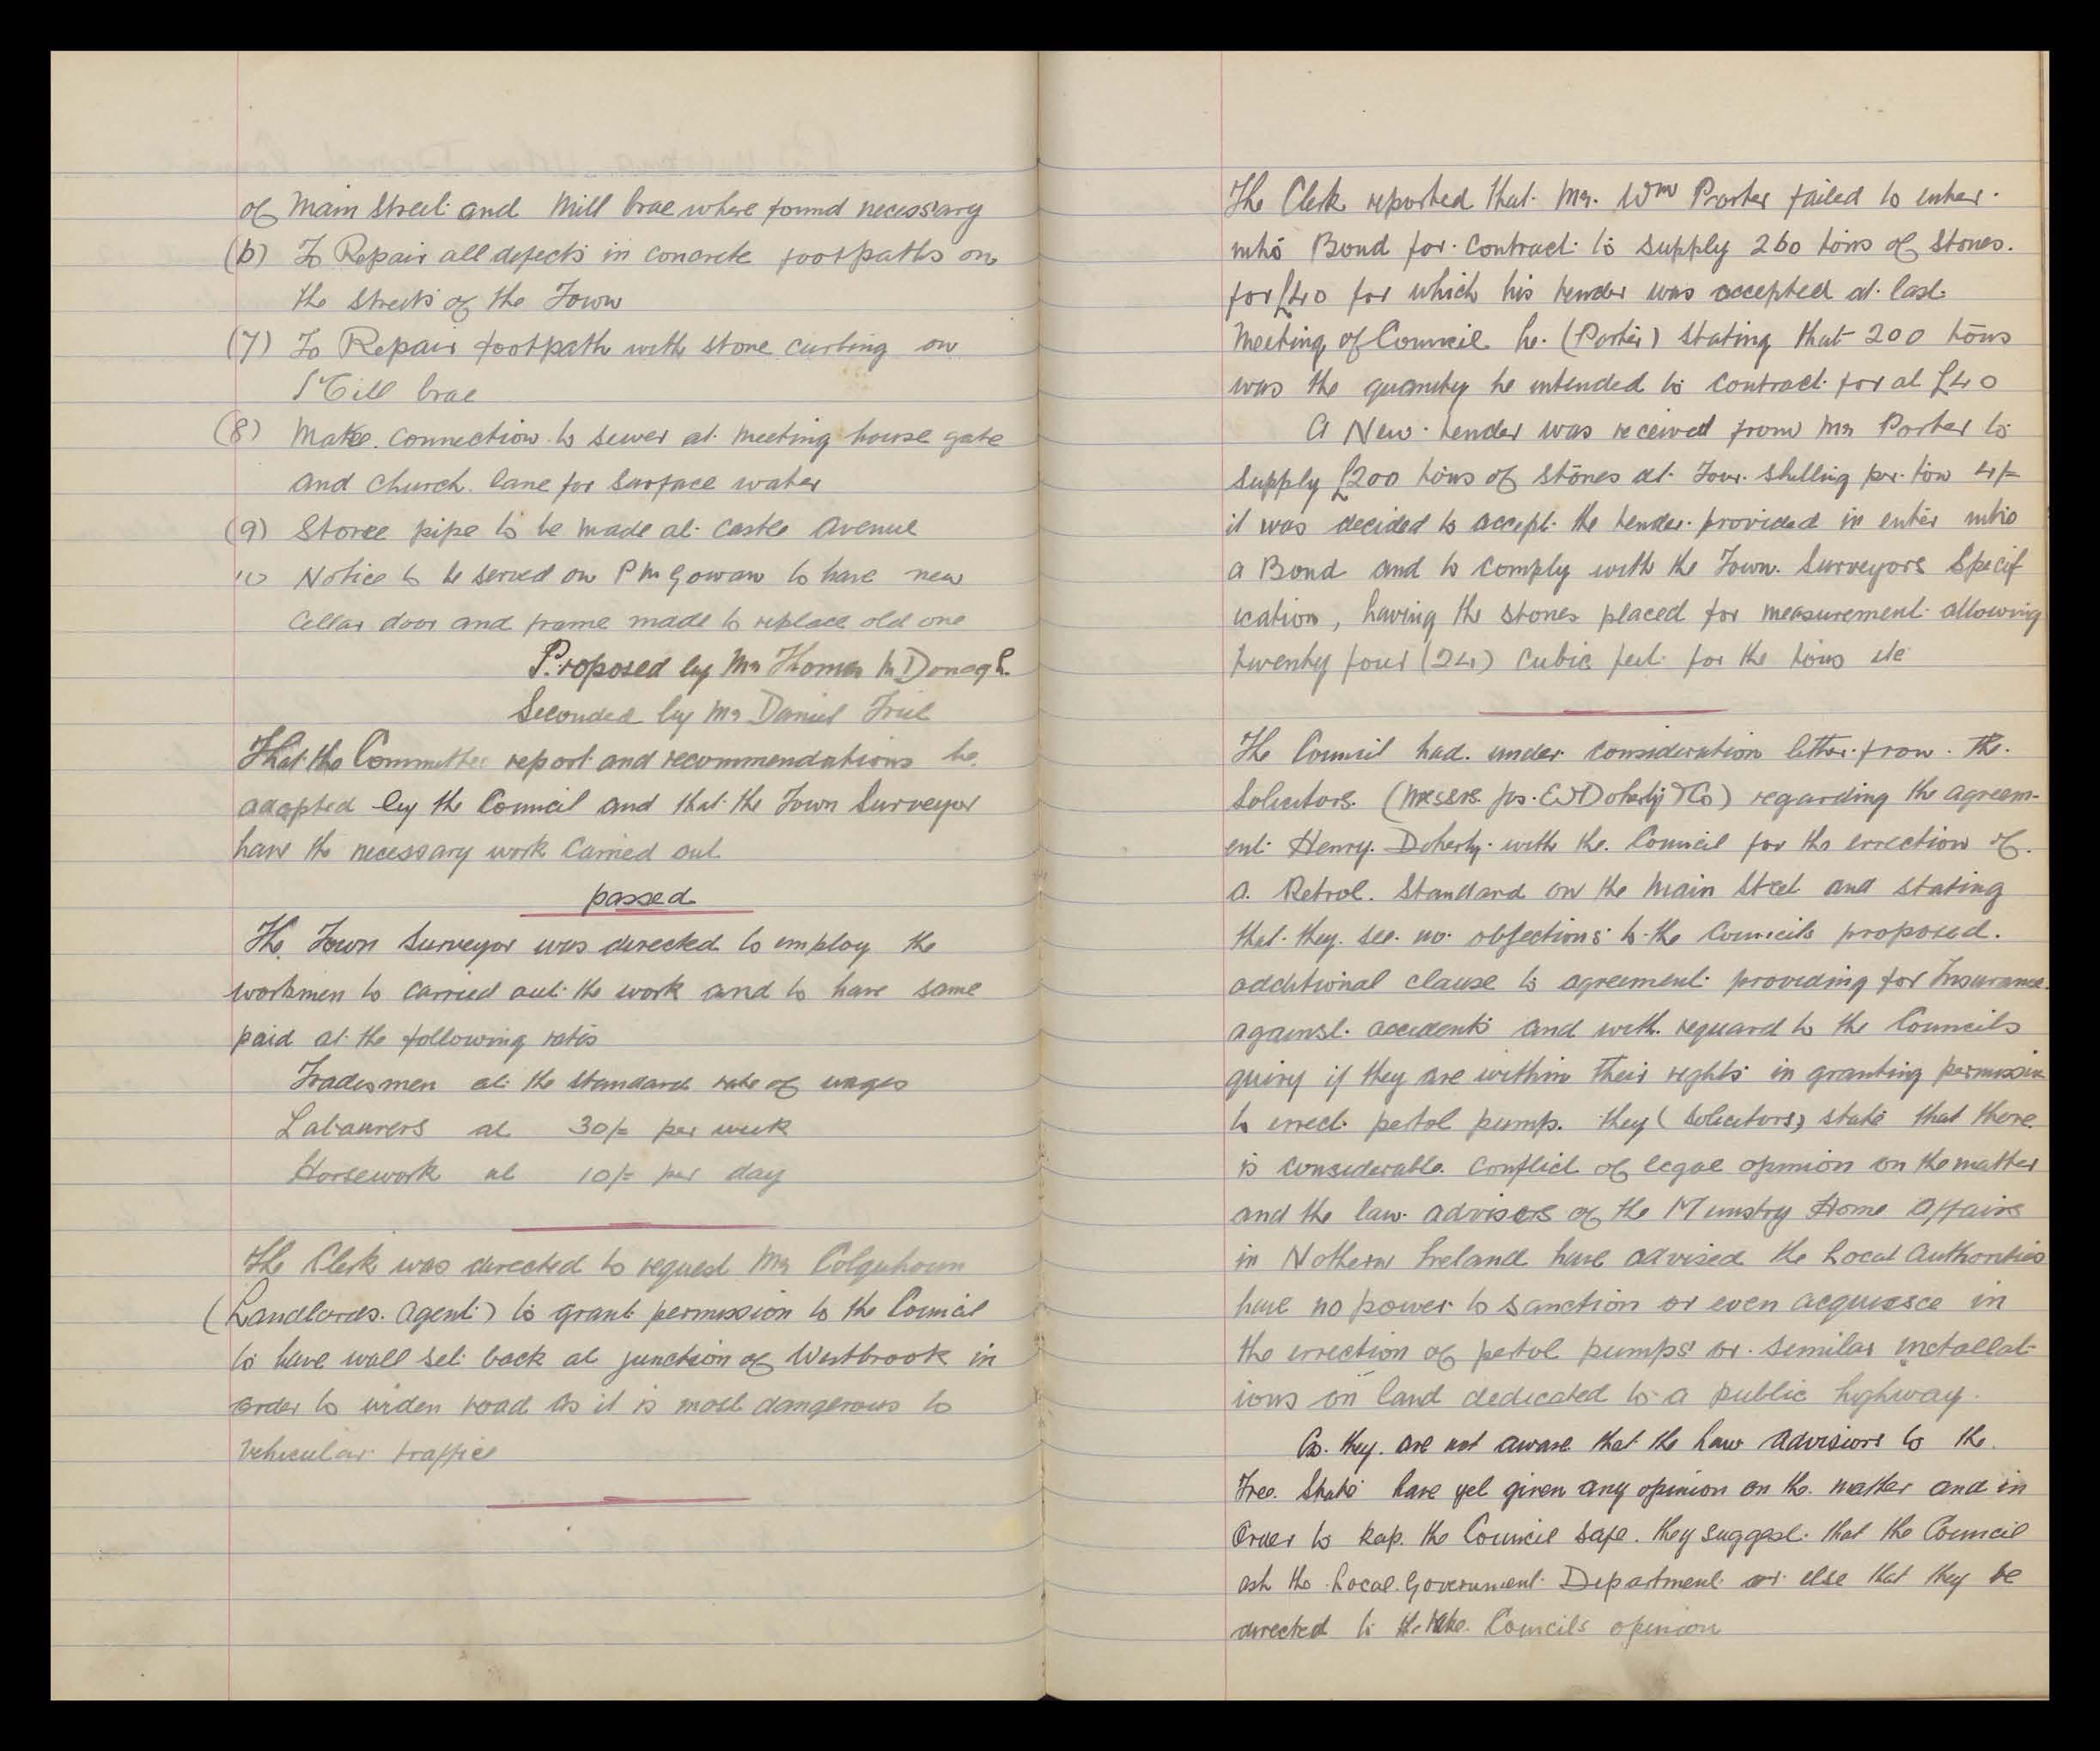 of Main Street and Mill brae where found necessary
(6) To Repair all defects in concrete footpaths on
the streets of the Town
(7) To Repair footpath with stone curbing on
Mill brae
(8) Make connection to sewer at meeting house gate
and church lane for surface water
(9) Storee pipe to be made at Castle Avenue
10 Notice to be served on P McGowan to have new
cellar door and frame made to replace old one
Proposed by Mr Thomas McDonagh
Seconded by Mr Daniel Friel
That the Committee report and recommendations be
adopted by the Council and that the Town Surveyor
have the necessary work Carried out
passed
The Town Surveyor was directed to employ the
workmen to carried out the work and to have same
paid at the following rates
Tradesmen at the standard rate of wages
Labourers at 30/= per week
Horsework at 10/= per day
The Clerk was directed to request Mr Colquhoun
(Landlords Agent) to grant permission to the Council
to have wall set back at junction of Westbrook in
order to widen road as it is most dangerous to
Vehicular traffic
The Clerk reported that Mr. Wm Porter failed to enter
into Bond for contract to supply 260 tons of Stones.
for £40 for which his tender was accepted at last
Meeting of Council he (Porter) stating that 200 tons
was the quantity he intended to contract for at £40
A New tender was received from Mr Porter to
supply £200 tons of stones at Four shilling per ton 4/=
it was decided to accept the tender provided in enter into
a Bond and to comply with the Town Surveyors Specif
ication, having the stones placed for measurement allowing
twenty four (24) cubic feet for the tons etc
The Council had under consideration letter from the
Solicitors (Messrs Jos. E. Doherty & Co) regarding the agreem-
ent Henry Doherty with the Council for the errection of
a Petrol Standard on the Main Street and stating
that they see no objections to the Councils proposed
additional clause to agreement providing for Insurance
against accidents and with reguard to the Councils
quiry if they are within their rights in granting permission
to errect pertol pump. they (Solicitors) state that there
is considerable conflict of legal opinion on the matter
and the law advisers of the Minstry Home Affairs
in Nothern Ireland have advised the Local Authorities
have no power to sanction or even acquiesce in
the errection of pertol pumps or similar installat-
ions on land dedicated to a public highway.
As they are not aware that the law advisiors to the
Free State have yet given any opinion on the matter and in
Order to keep the Council safe. they suggest that the Council
ask the Local Government Department or else that they be
directed to the take Councils opinion